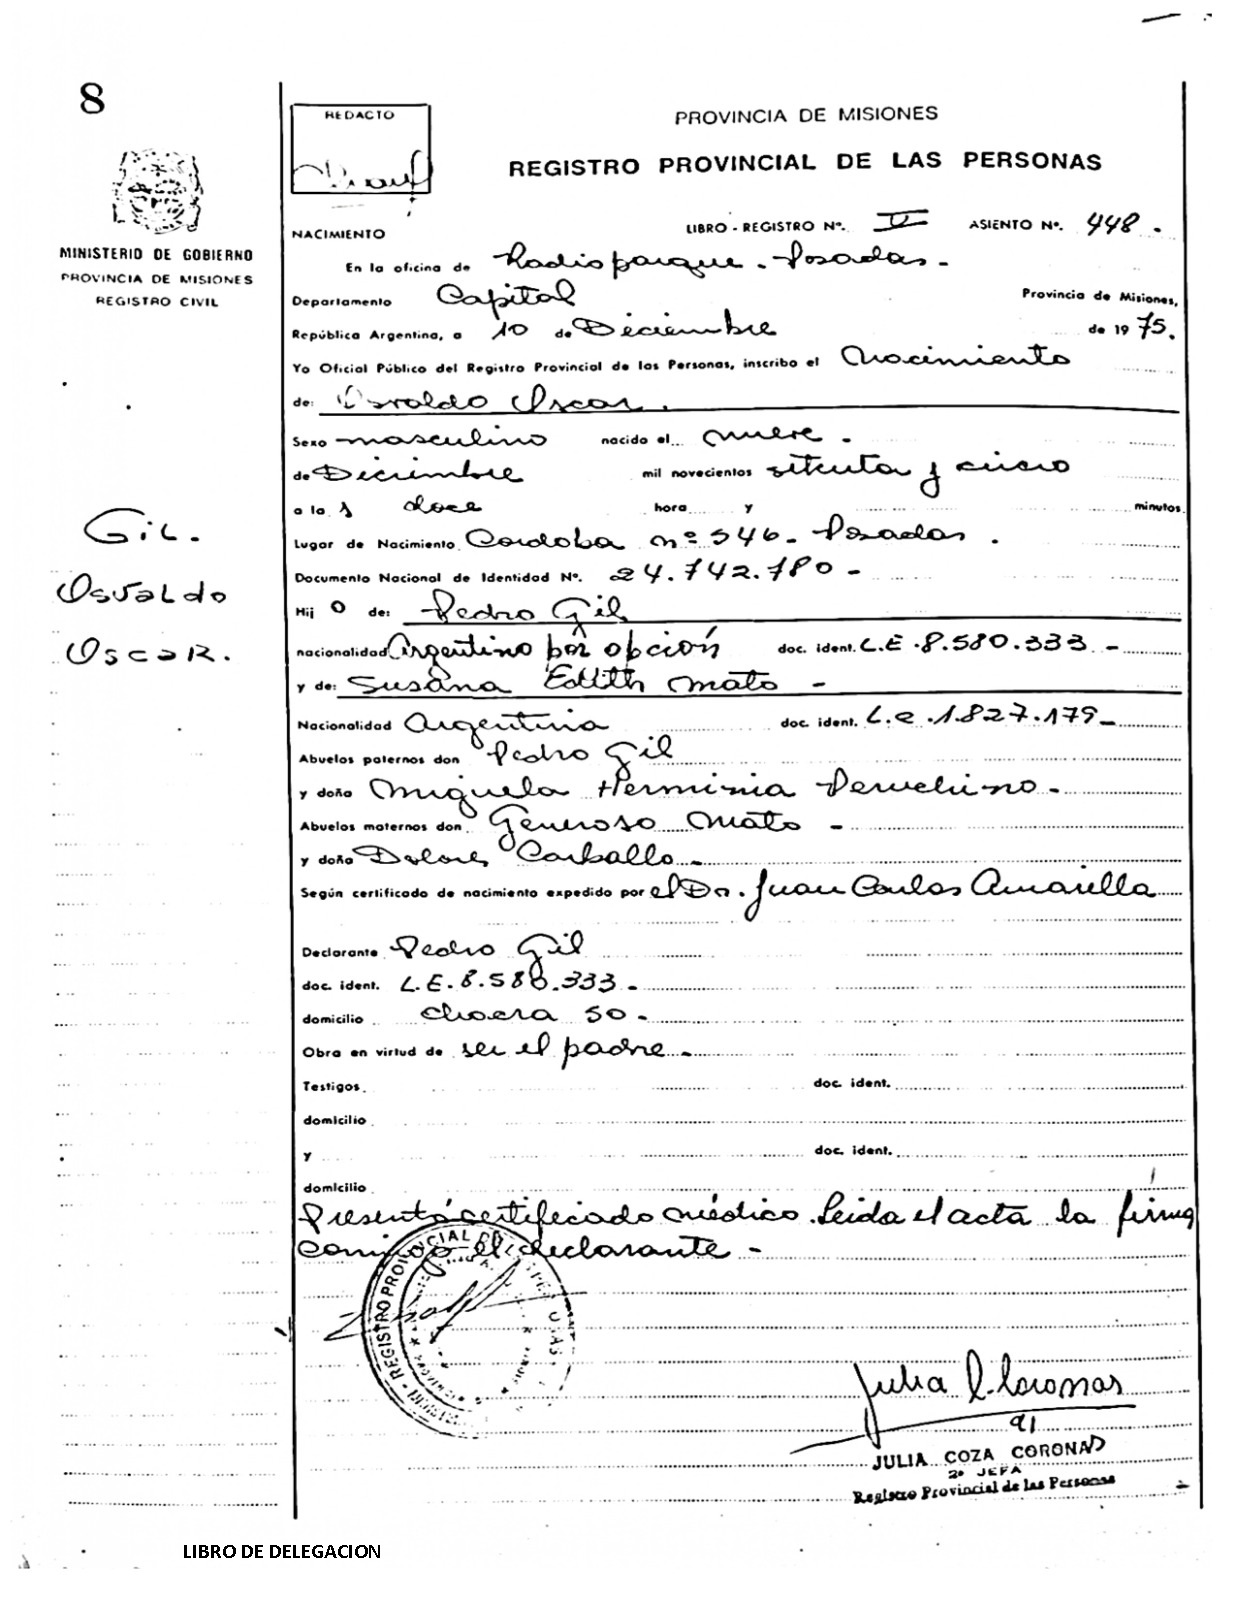 8
REDACTO
PROVINCIA DE MISIONES
REGISTRO PROVINCIAL DE LAS PERSONAS
MINISTERIO DE GOBIERNO
PROVINCIA DE MISIONES
REGISTRO CIVIL
NACIMIENTO LIBRO - REGISTRO Nº. II ASIENTO Nº. 448.
En la oficina de Radioparque - Posadas -
Departamento Capital Provincia de Misiones,
República Argentina, a 10 de Diciembre de 1975.
Yo Oficial Público del Registro Provincial de las Personas, inscribo el Nacimiento
de: Osvaldo Oscar.
Sexo masculino nacido el nueve.
de Diciembre mil novecientos setenta y cinco
a las doce hora y minutos
Lugar de Nacimiento Cordoba nº 546 - Posadas.
Documento Nacional de Identidad Nº. 24.742.780 -
Gil.
Osvaldo
Oscar.
Hijo de: Pedro Gil
nacionalidad Argentino por opción doc. ident. L.E. 8.580.333 -
y de: Susana Edith Mato -
Nacionalidad Argentina doc. ident. L.C. 1.827.179 -
Abuelos paternos don Pedro Gil
y doña Miguela Herminia Peruchino -
Abuelos maternos don Generoso Mato -
y doña Dolores Carballo -
Según certificado de nacimiento expedido por el Dr. Juan Carlos Amarilla
Declarante Pedro Gil
doc. ident. L.E. 8.580.333 -
domicilio Chacra 50 -
Obra en virtud de ser el padre -
Testigos doc. ident.
domicilio
y doc. ident.
domicilio
Presentó certificado médico. Leida el acta la firma
conmigo el declarante -
REGISTRO PROVINCIAL
Julia C. Coronas
JULIA COZA CORONAD
2º JEFA
Registro Provincial de las Personas
LIBRO DE DELEGACION